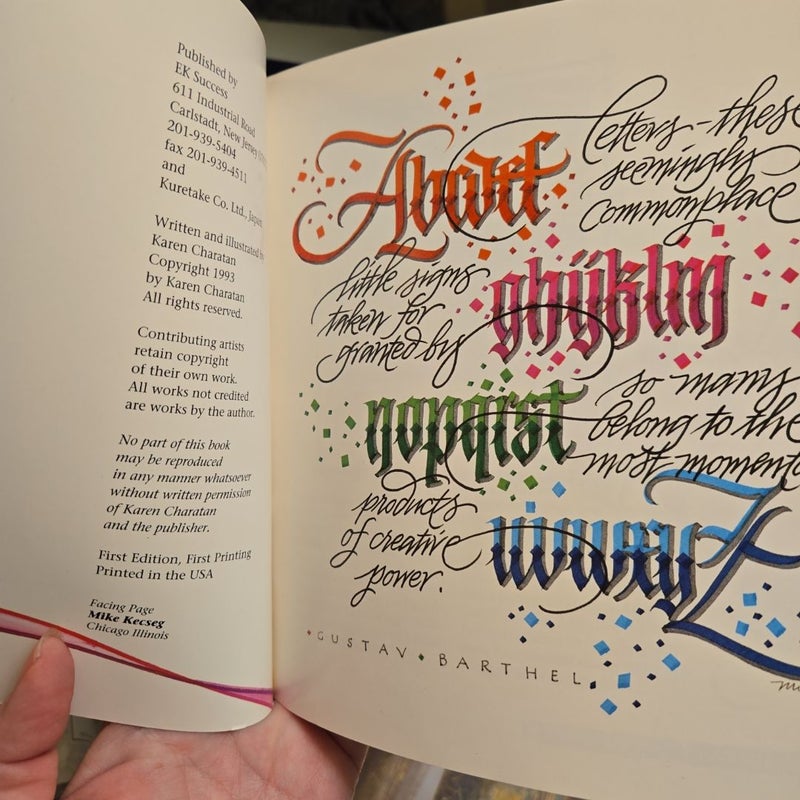 Published by
EK Success
611 Industrial Road
Carlstadt, New Jersey
201-939-5404
fax 201-939-4511
and
Kuretake Co. Ltd., Japan
Written and illustrated by
Karen Charatan
Copyright 1993
by Karen Charatan
All rights reserved.
Contributing artists
retain copyright
of their own work.
All works not credited
are works by the author.
No part of this book
may be reproduced
in any manner whatsoever
without written permission
of Karen Charatan
and the publisher.
First Edition, First Printing
Printed in the USA
Facing Page
Mike Kecseg
Chicago Illinois
Abcdef
letters-these
seemingly
commonplace
little signs
taken for
granted by
ghijklm
so many
belong to the
most
nopqrst
products
of creative
power.
uvwxyz
GUSTAV BARTHEL